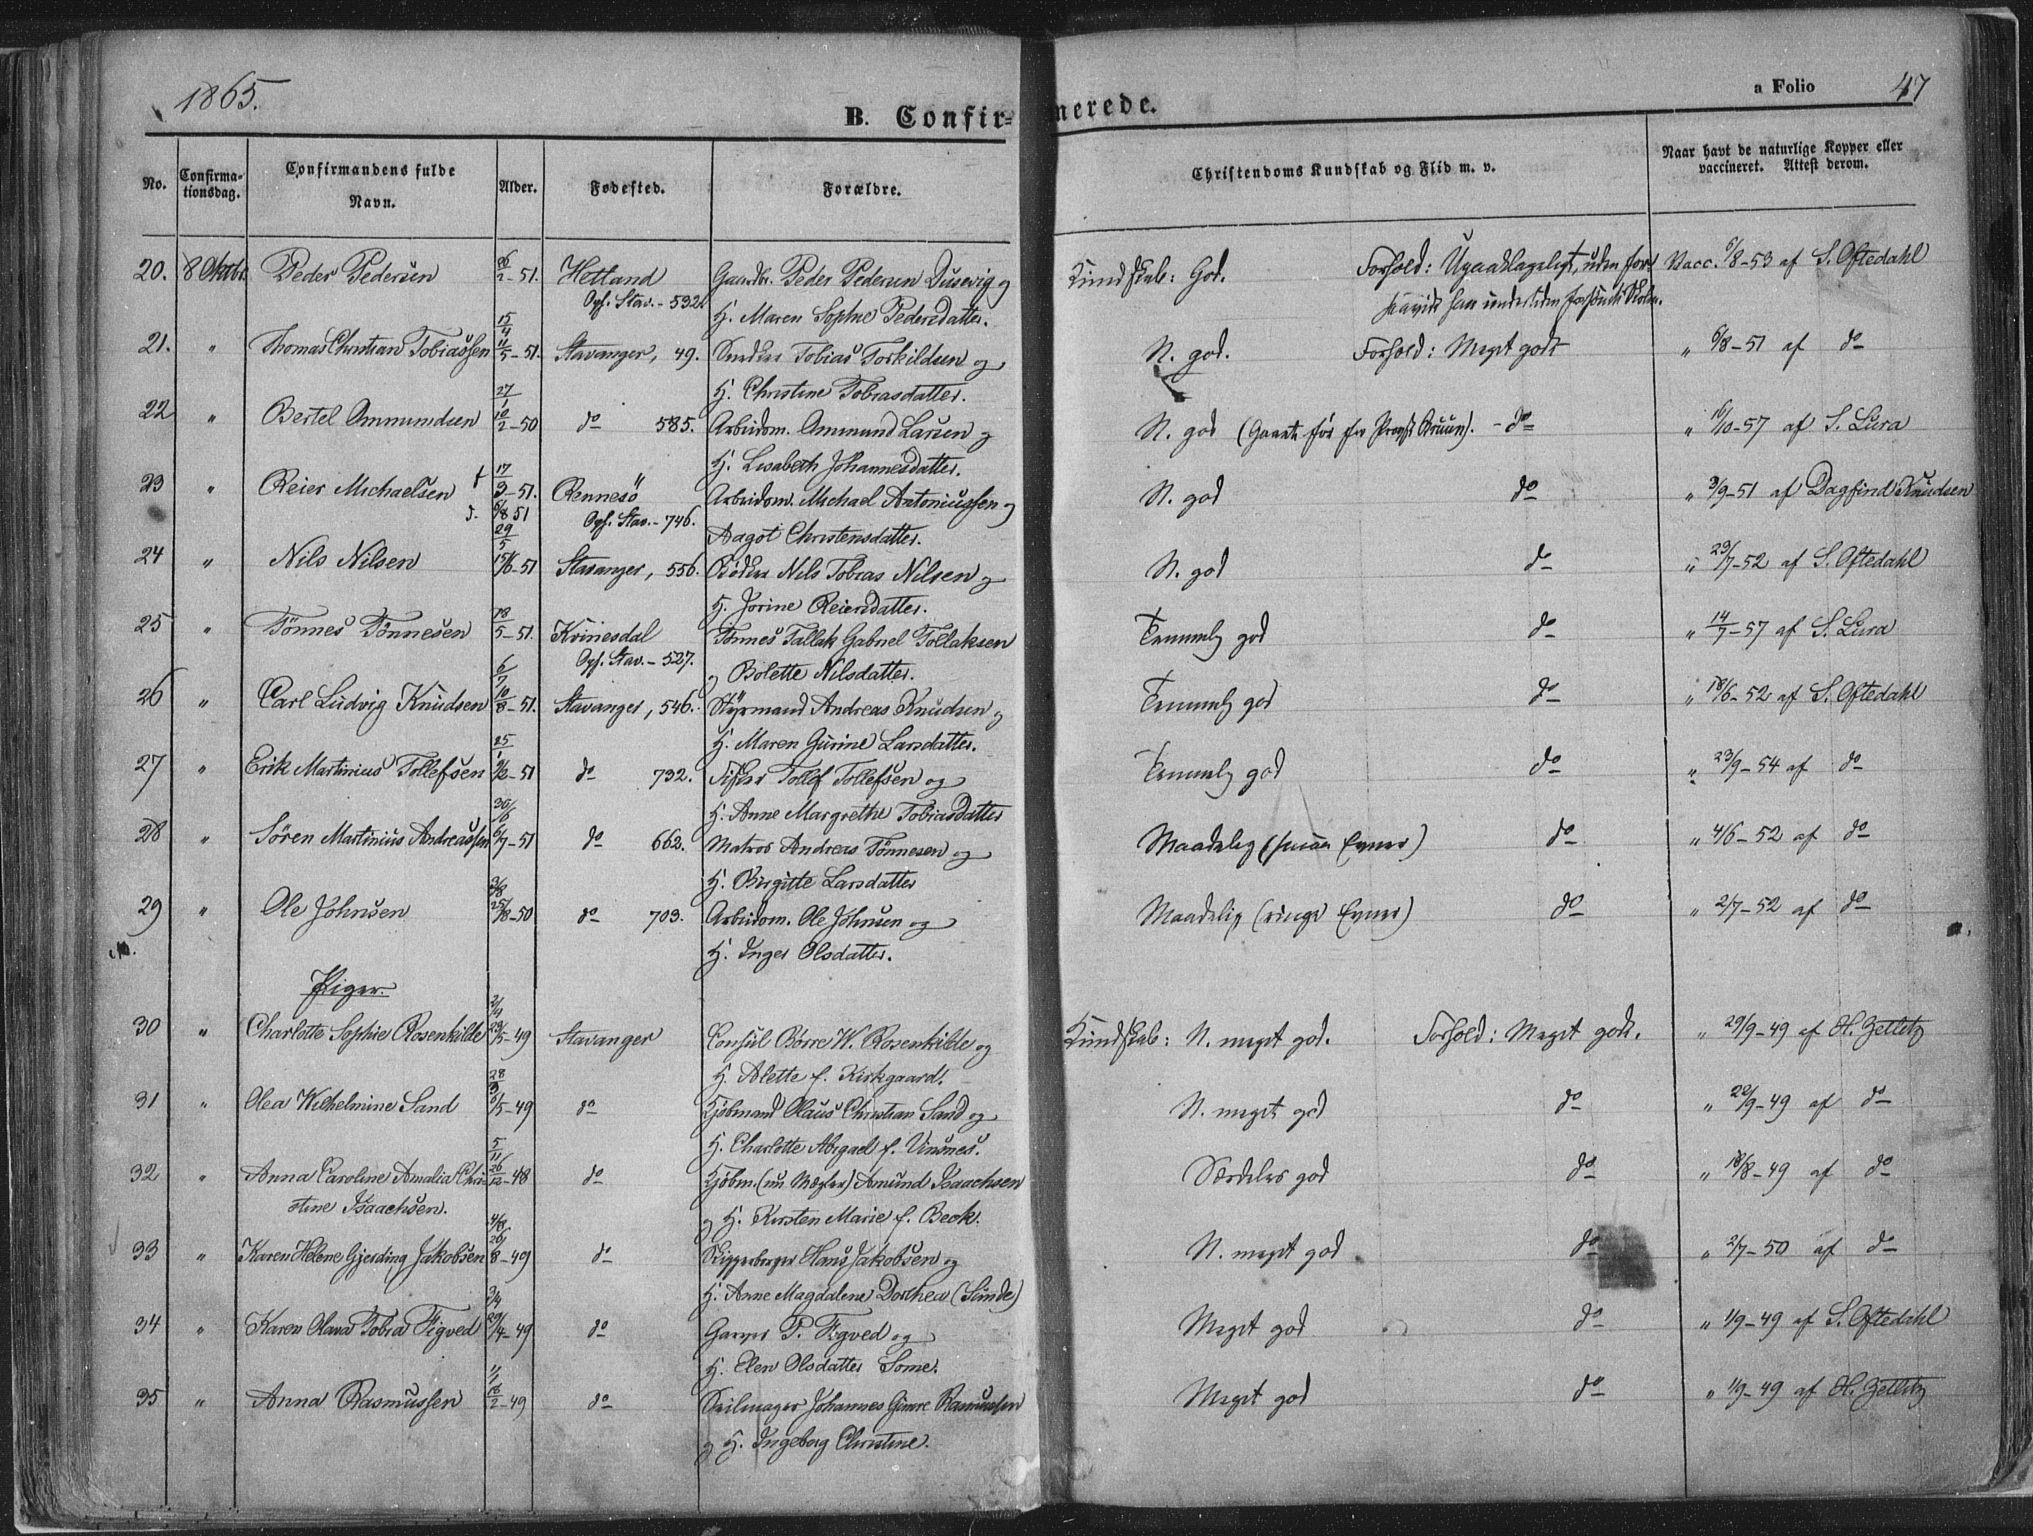 1865.
a Folio 47
B. Confirmerede.
No. Confirma-tionsdag. Confirmandens fulde Navn. Alder. Fødested. Forældre. Christendoms Kundskab og Flid m. v. Naar havt de naturlige Kopper eller vaccineret. Attest derom.
20. 8 Oktbr. Peder Pedersen 26/2-51. Hetland Gaardbr. Peder Pedersen Dusevig og Kundskab: God. Forhold: Upaaklageligt, uden for Vacc. 5/8-53 af S. Oftedahl
Opf. Stav.-532. H. Maren Sophie Pedersdatter. saavidt han undertiden forsömte Skolen.
15/4
21. " Thomas Christian Tobiassen 11/5-51. Stavanger, 49. Snedker Tobias Torkildsen og N. god. Forhold: Meget godt " 6/8-51 af do
27/1 H. Christine Tobiasdatter.
22 " Bertel Ommundsen 10/2-50 do 585. Arbeidsm. Ommund Larsen og N. god (Gaaet för for Provst Bruun). - do " 16/10-57 af S. Lura
17/3 H. Lisabeth Johannesdatter.
23 " Reier Michaelsen f -51. Rennesö Arbeidsm. Michael Antoniussen og N. god do " 3/9-51 af Dagfind Knudsen
d. 6/8 51 Opf. Stav.-746. Aagot Christensdatter.
29/5
24 " Nils Nilsen 15/6-51 Stavanger, 556. Bödker Nils Tobias Nilsen og N. god do " 29/7-52 af S. Oftedahl
H. Jorine Reiersdatter.
25 " Tönnes Tönnesen 18/5-51. Kvinesdal Tönnes Tallak Gabriel Tollaksen Temmelig god do " 14/7-57 af S. Lura
6/7 Opf. Stav.-527. og Bolette Nilsdatter.
26 " Carl Ludvig Knudsen 10/8-51. Stavanger, 546. Styrmand Andreas Knudsen og Temmelig god do " 18/6-52 af S. Oftedahl
25/1 H. Maren Gurine Larsdatter.
27 " Erik Martinius Tollefsen -51 do 732. Fisker Tollef Tollefsen og Temmelig god do " 23/9-54 af do
30/6 H. Anne Margrethe Tobiasdatter
28 " Sören Martinius Andreassen 6/7-51 do 662. Matros Andreas Tönnesen og Maadelig (smaa Evner) do " 4/6-52 af do
3/8 H. Birgitte Larsdatter
29 " Ole Johnsen 25/8-50 do 703. Arbeidsm. Ole Johnsen og Maadelig (ringe Evner) do " 2/7-52 af do
H. Inger Olsdatter.
Piger.
2/4
30 " Charlotte Sophie Rosenkilde 23/5-49 Stavanger Consul Börre W. Rosenkilde og Kundskab: N. meget god. Forhold: Meget godt. " 29/9-49 af H. Zetlitz
28/3 H. Alette f. Kirkgaard.
31 " Olea Wilhelmine Sand /5-49 do Kjöbmand Olaus Christian Sand og N. meget god do " 22/9-49 af do
5/11 H. Charlotte Abigael f. Vinsnes.
32 " Anna Caroline Amalia Chri- 26/12-48 do Kjöbm. (nu Mægler) Amund Isaachsen Særdeles god do " 18/8-49 af do
stine Isaachsen. 4/8. og H. Kirsten Marie f. Beck.
33 " Karen Helene Gjerding Jakobsen 26/8-49 do Skipperborger Hans Jakobsen og N. meget god do " 2/7-50 af do
3/4 H. Anne Magdalene Dorthea (Sunde)
34 " Karen Olava Tobia Figved 29/4-49 do Garver P. Figved og Meget god do " 1/9-49 af S. Oftedahl
11/1 H. Elen Olsdatter Some.
35 " Anna Rasmussen 18/2-49 do Seilmager Johannes Gimre Rasmussen Meget god do " 1/9-49 af H. Zetlitz
og H. Ingeborg Christine.